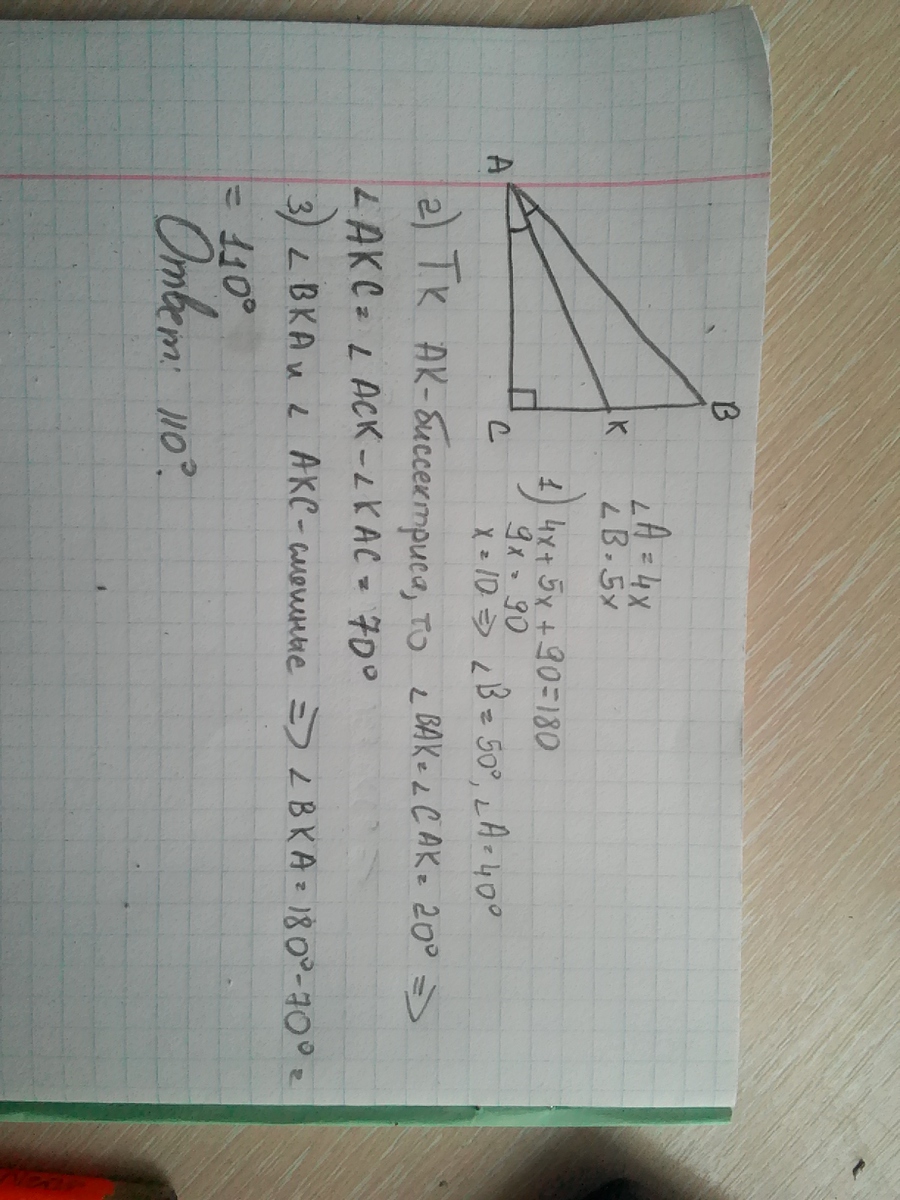 B
A
K
C
∠A = 4x
∠B = 5x
1) 4x + 5x + 90 = 180
9x = 90
x = 10 ⇒ ∠B = 50°, ∠A = 40°
2) Тк АК - биссектриса, то ∠BAK = ∠CAK = 20° ⇒
∠AKC = ∠ACK - ∠KAC = 70°
3) ∠BKA и ∠AKC - смежные ⇒ ∠BKA = 180° - 70° =
= 110°
Ответ: 110°.